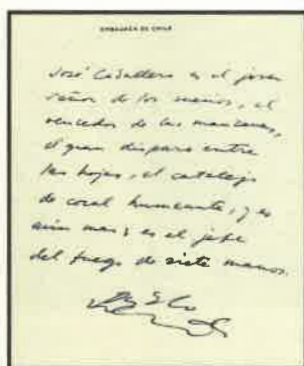 EMBAJADA DE CHILE
José Caballero es el joven
señor de los manos, el
vencedor de las manzanas,
el gran disparo entre
las hojas, el catalejo
de coral humeante, y es
aún mas: es el jefe
del fuego de siete manos.
Pablo
Neruda